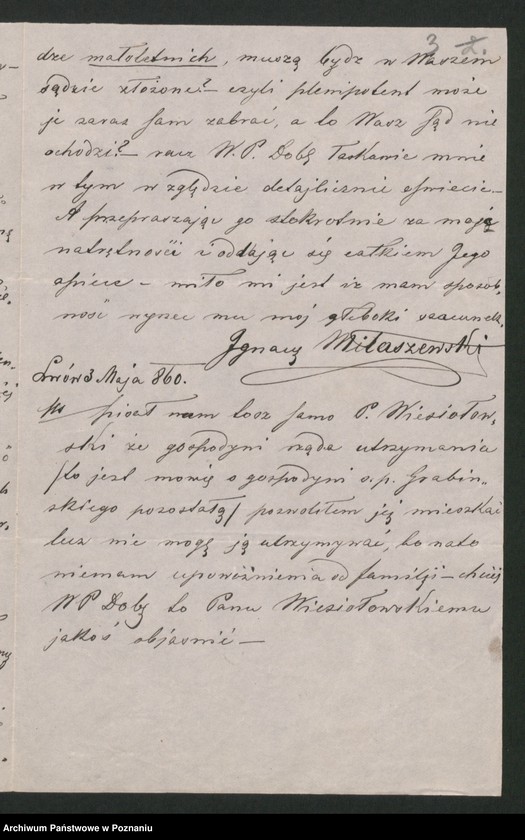 3 2.
dze małoletnich, muszą bydz w Waszem
sądzie złożone? — czyli plenipotent może
je zaraz sam zabrać, a to Wasz sąd nie
ochodzi? — racz W. P. Dobr łaskawie mnie
w tym względzie detajlicznie oswiecic —
A przepraszając go stokrotnie za moją
natrętność i oddając się całkiem Jego
opiece — miło mi jest iż mam sposob,
ność wyrzec mu mój głęboki szacunek
Ignacy Miłaszewski
Lwów 3 Maja 860.
ps pisał nam toż samo P. Wiesiołow,
ski że gospodyni rząda utrzymania
/to jest mowię o gospodyni s.p. Grabin„
skiego pozostałą/ pozwoliłem jej mieszkać
lecz nie mogę ją utrzymywać, bo na to
niemam upoważnienia od familji — chciej
WP Dobr to Panu Wiesiołowskiemu
jakoś objasnić —
Archiwum Państwowe w Poznaniu